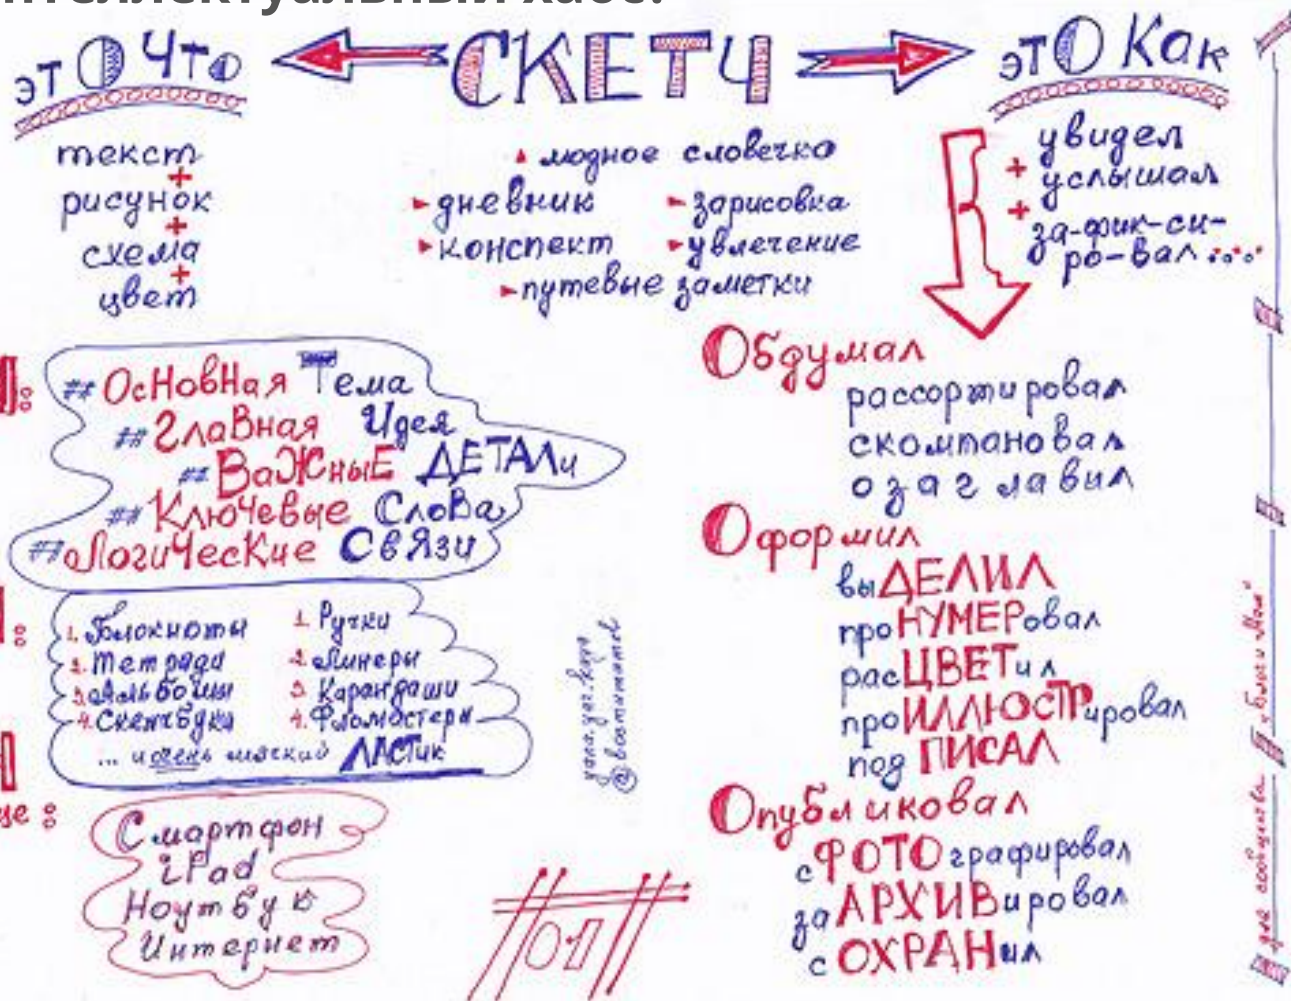 СКЕТЧ
это что
текст
+
рисунок
+
схема
+
цвет
модное словечко
дневник
зарисовка
конспект
увлечение
путевые заметки
это Как
увидел
+ услышал
+ за-фик-си-
ро-вал....
## Основная Тема
## Главная Идея
## ВаЖныЕ ДЕТАЛи
## Ключевые СлоВа
## Логические Связи
1. Блокноты
2. Тетради
3. Альбомы
4. Скетчбуки
1. Ручки
2. Линеры
3. Карандаши
4. Фломастеры
... и очень мягкий ЛАСТик
Смартфон
iPad
Ноутбук
Интернет
Обдумал
рассортировал
скомпановал
озаглавил
Оформил
выДЕЛИЛ
проНУМЕРовал
расЦВЕТил
проИЛЛЮСТРировал
подПИСАЛ
Опубликовал
сФОТОграфировал
заАРХИВировал
сОХРАНил
для сообщества